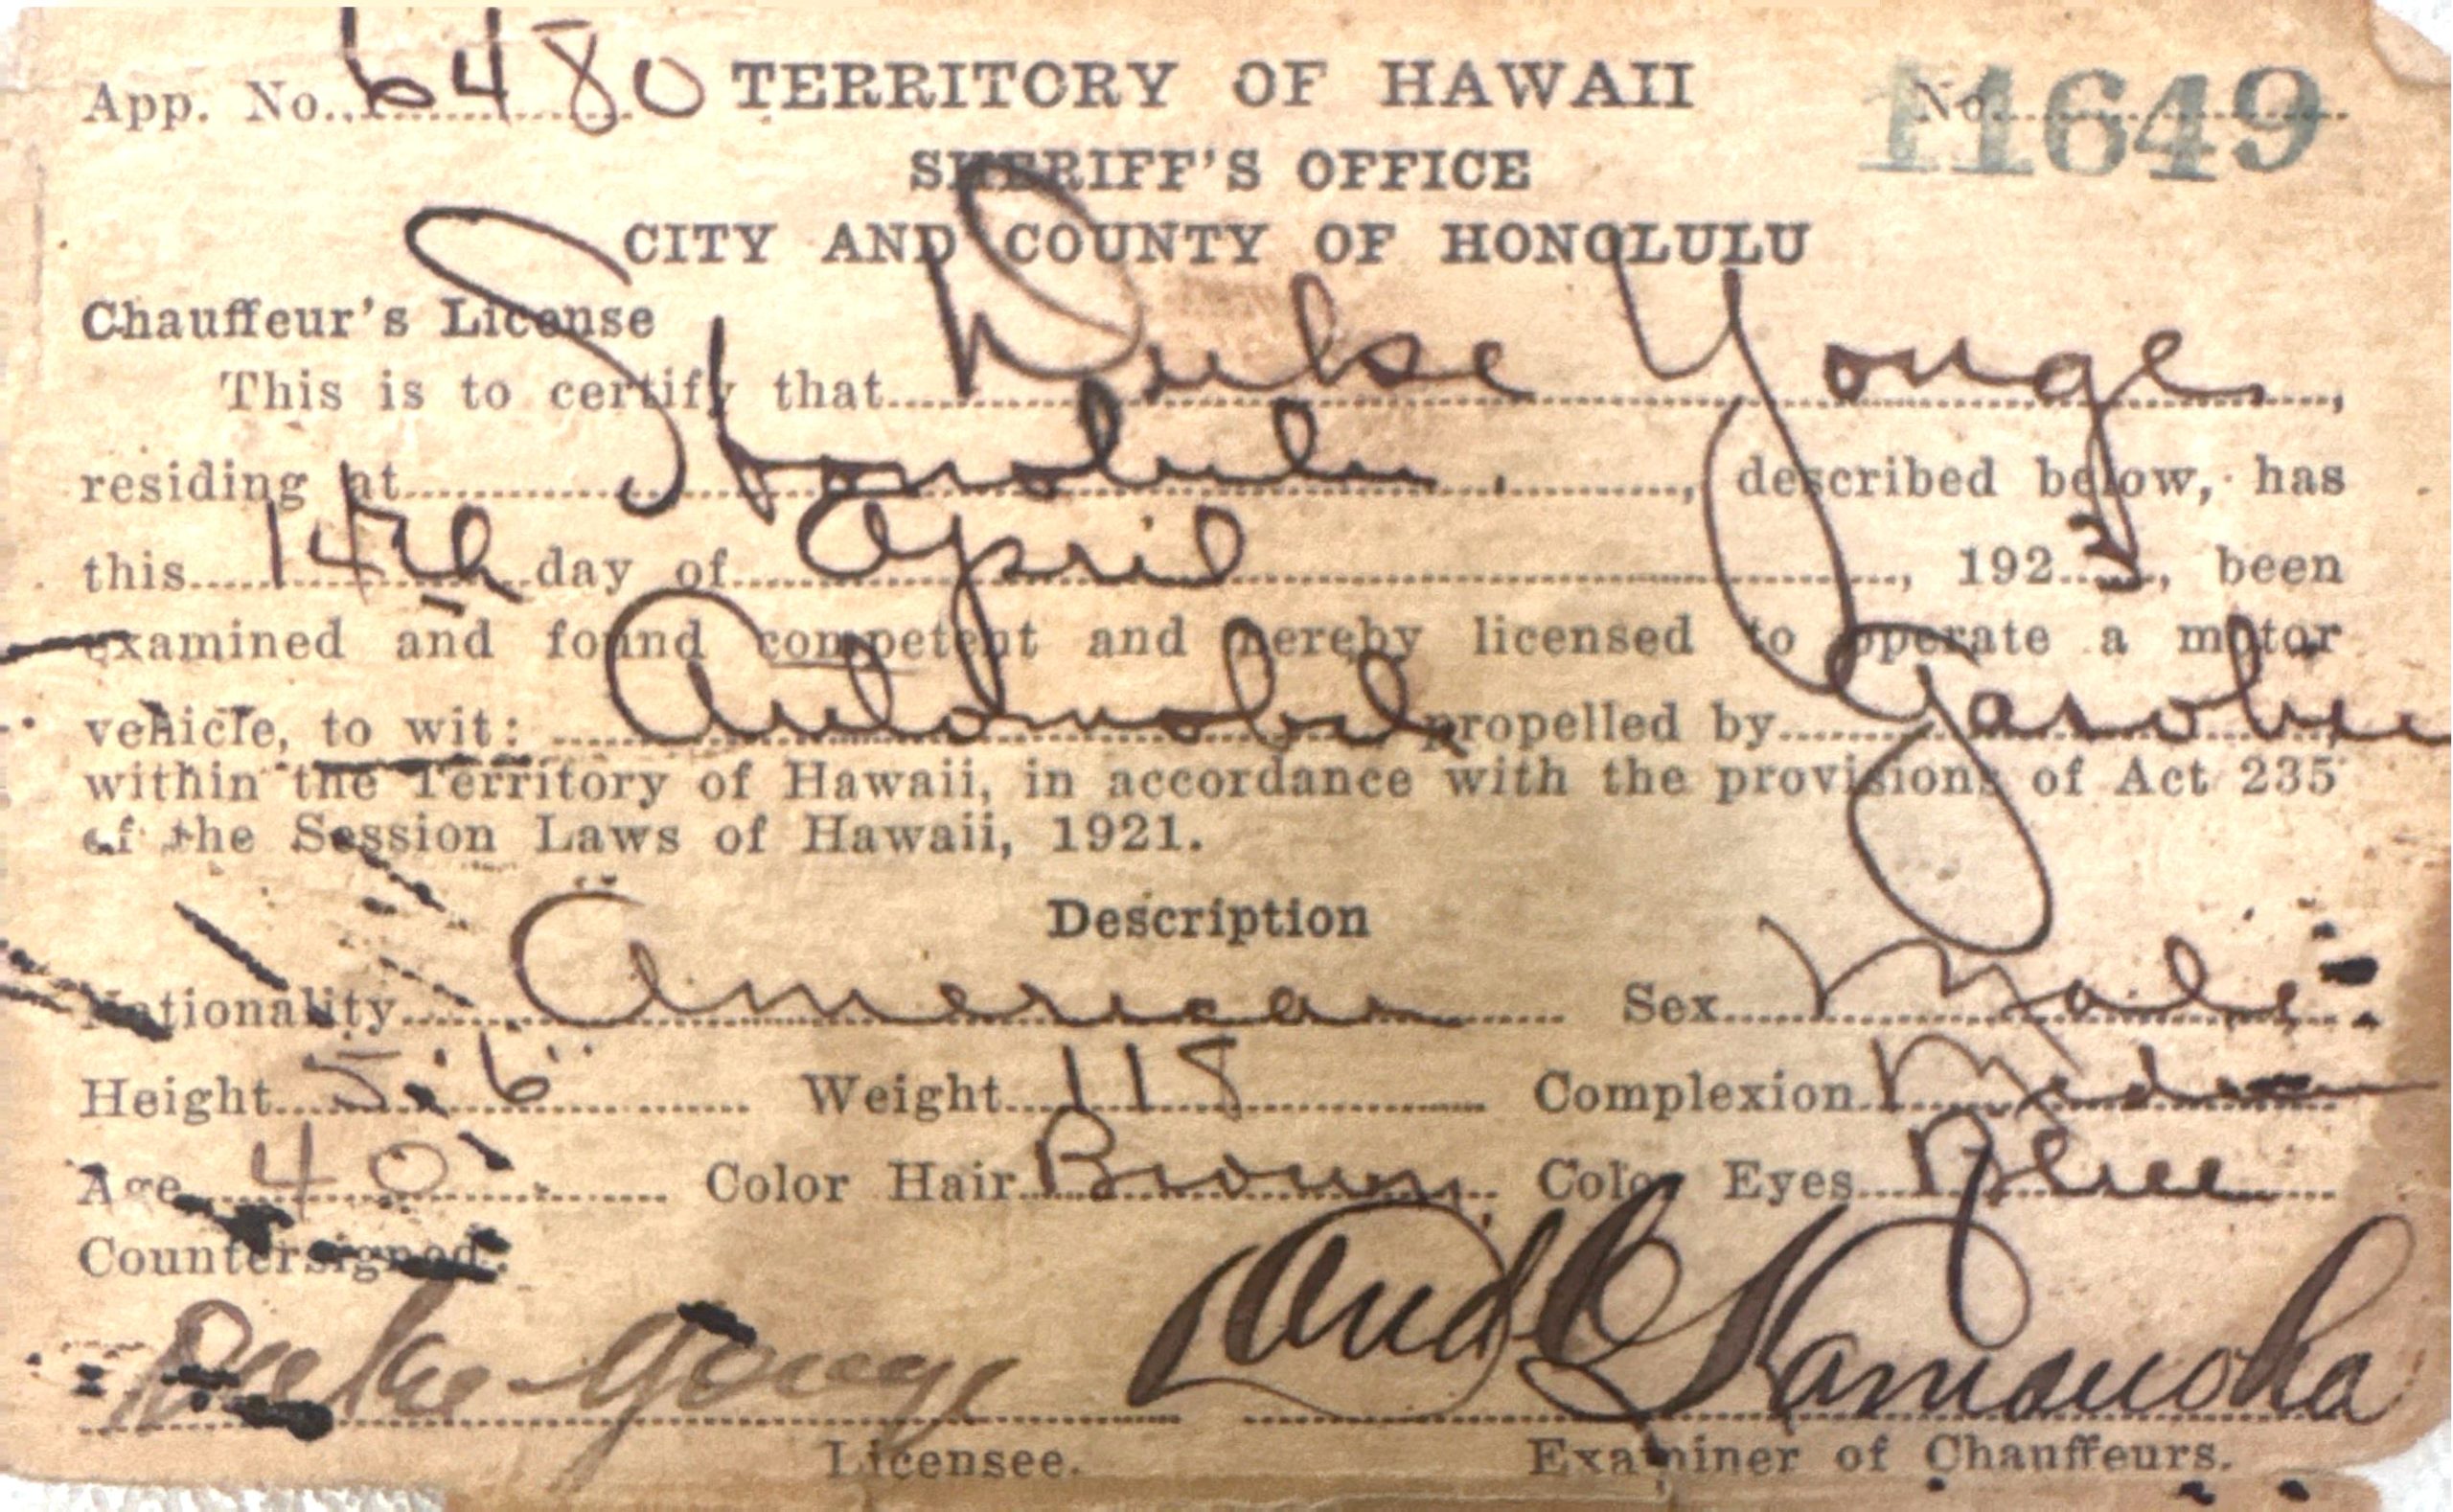 App. No. 6480 TERRITORY OF HAWAII No. 11649
SHERIFF'S OFFICE
CITY AND COUNTY OF HONOLULU
Chauffeur's License
This is to certify that Duke Yonge,
residing at Honolulu, described below, has
this 14th day of April, 1923, been
examined and found competent and hereby licensed to operate a motor
vehicle, to wit: Automobile propelled by Gasoline
within the Territory of Hawaii, in accordance with the provisions of Act 235
of the Session Laws of Hawaii, 1921.
Description
Nationality American Sex Male
Height 5' 6" Weight 118 Complexion Medium
Age 40 Color Hair Brown Color Eyes Blue
Countersigned:
Duke Yonge
Licensee. Examiner of Chauffeurs.